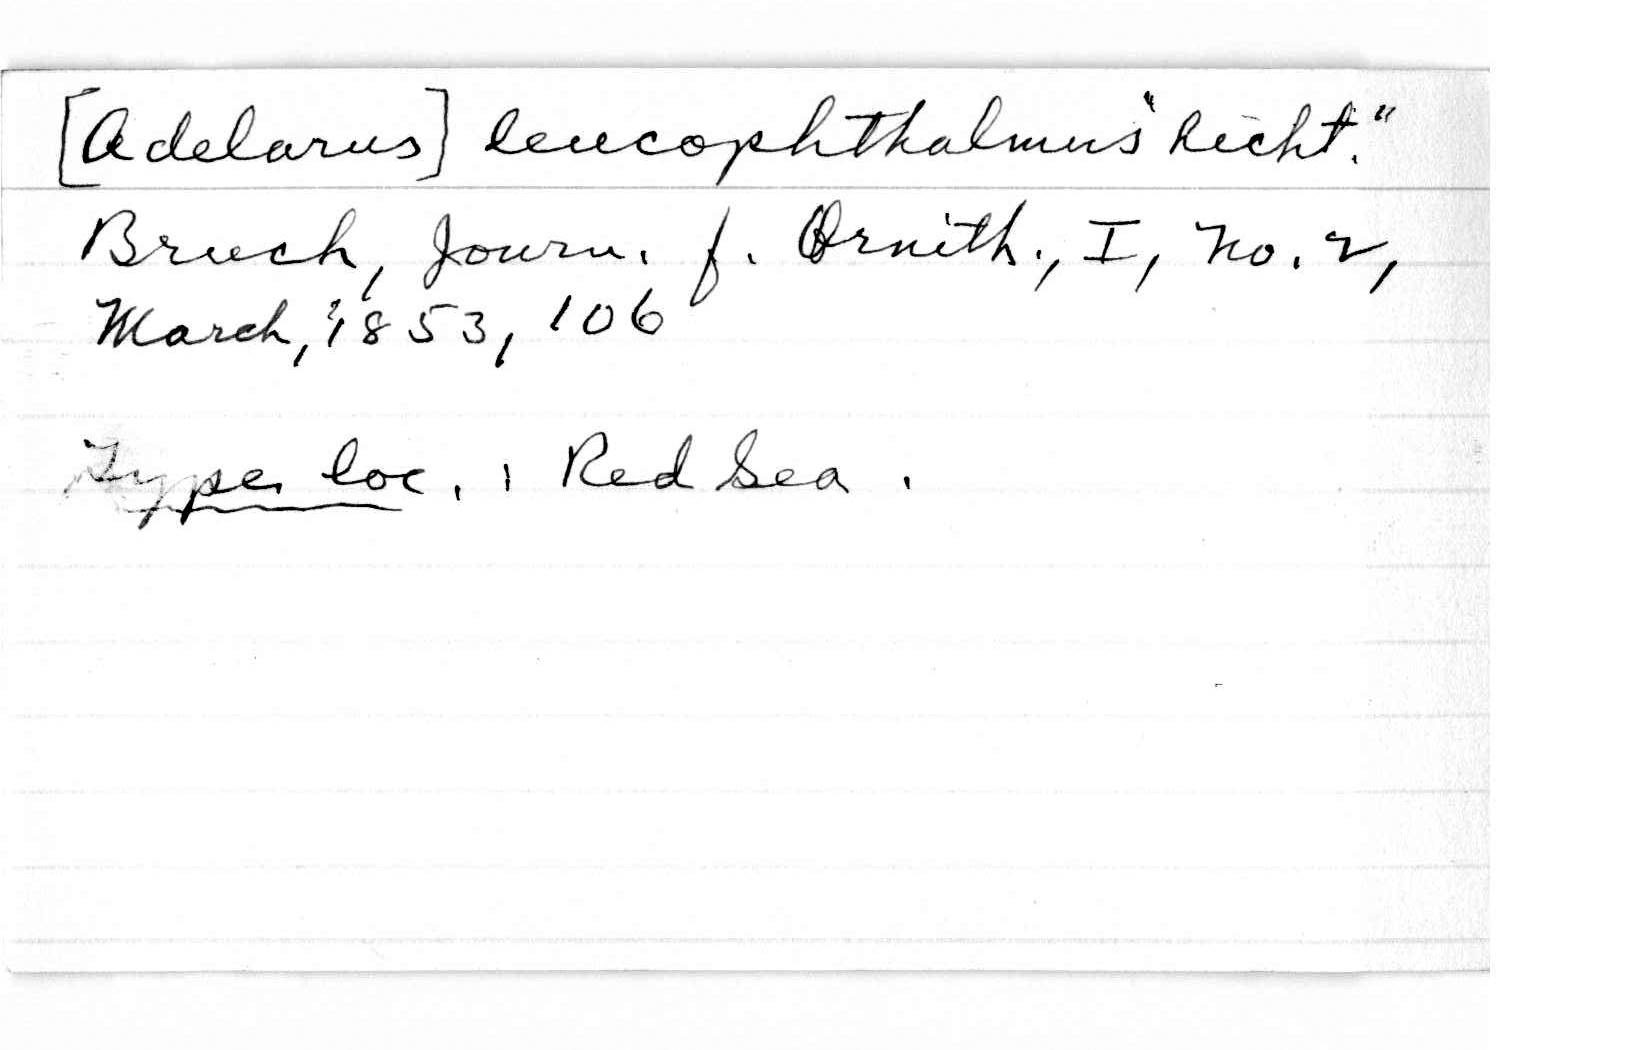 [Adelarus] leucophthalmus "Licht."
Bruch, Journ. f. Ornith., I, No. 2,
March, 1853, 106
Type loc.: Red Sea.